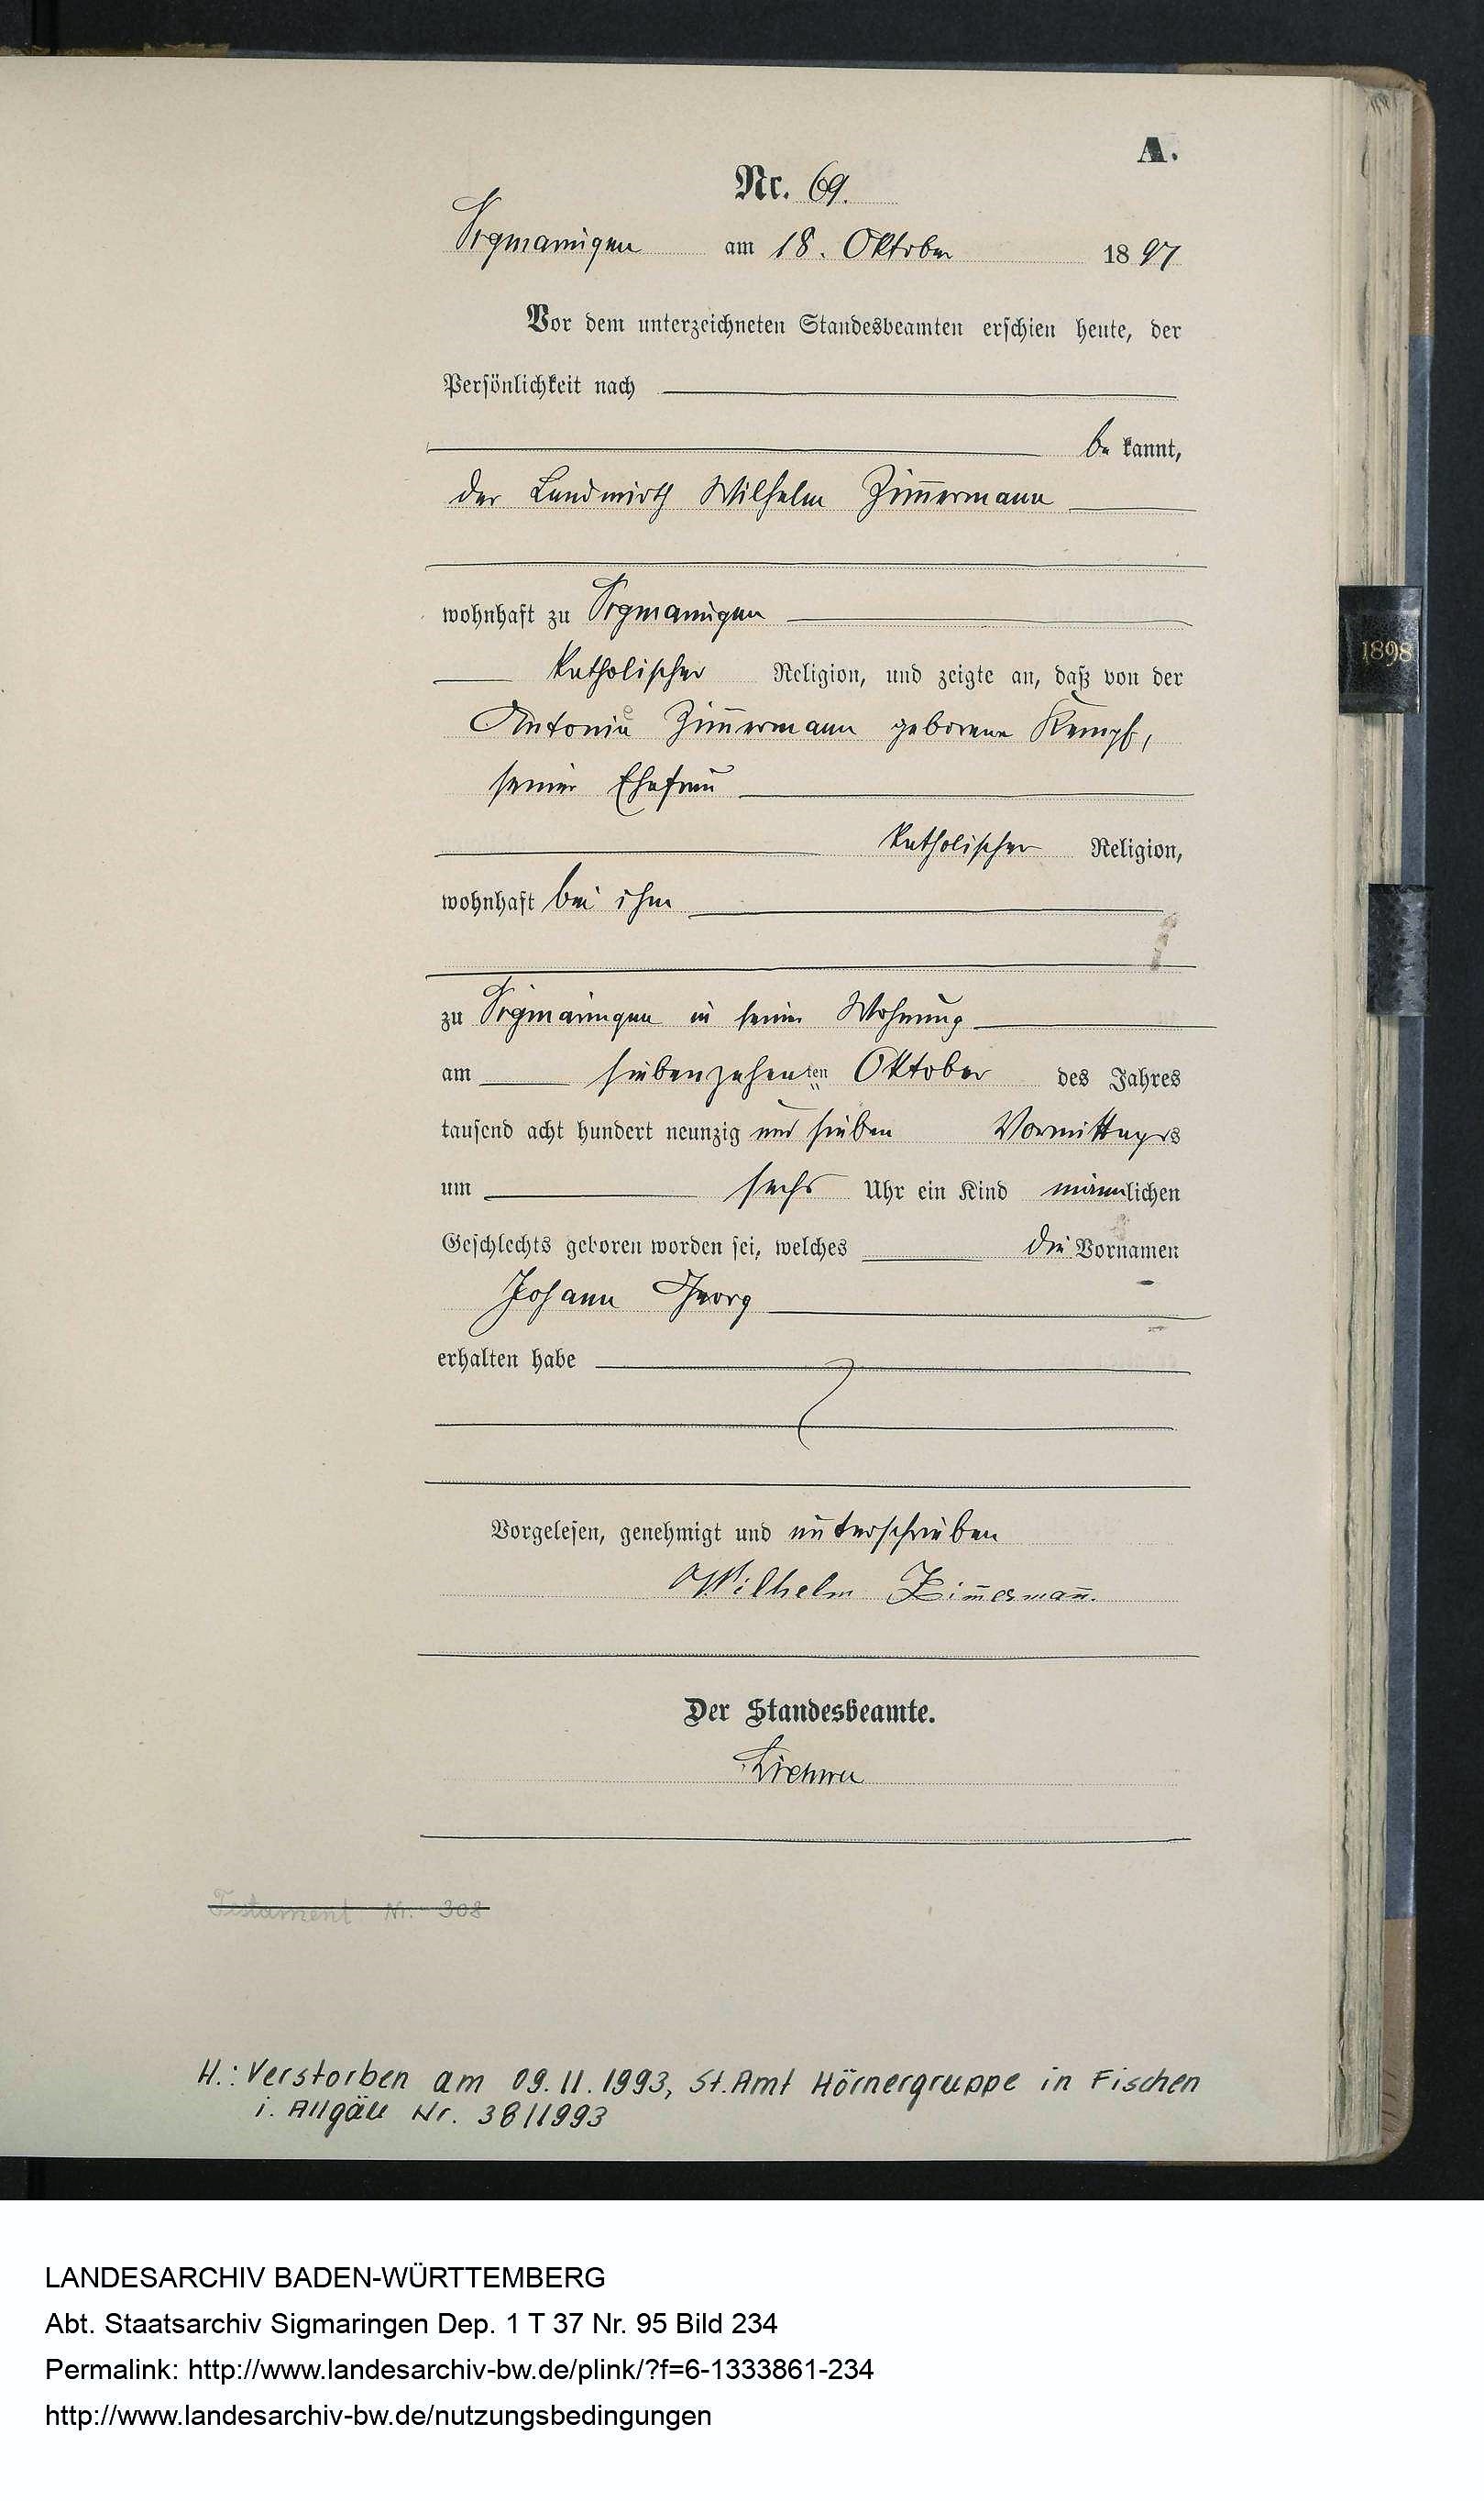 A.
Nr. 69.
Sigmaringen am 18. Oktober 1897
Vor dem unterzeichneten Standesbeamten erschien heute, der
Persönlichkeit nach
be kannt,
der Landwirth Wilhelm Zim̅ermann
wohnhaft zu Sigmaringen
katholischer Religion, und zeigte an, daß von der
Antonie Zim̅ermann geborene Kempf,
seiner Ehefrau
katholischer Religion,
wohnhaft bei ihm
zu Sigmaringen in seiner Wohnung
am siebenzehenten Oktober des Jahres
tausend acht hundert neunzig und sieben Vormittags
um sechs Uhr ein Kind männlichen
Geschlechts geboren worden sei, welches die Vornamen
Johann Georg
erhalten habe
Vorgelesen, genehmigt und unterschrieben
Wilhelm Zim̅erman̅.
Der Standesbeamte.
Testament Nr. 308
H.: Verstorben am 09.11.1993, St.Amt Hörnergruppe in Fischen
i. Allgäu Nr. 38/1993
1898
LANDESARCHIV BADEN-WÜRTTEMBERG
Abt. Staatsarchiv Sigmaringen Dep. 1 T 37 Nr. 95 Bild 234
Permalink: http://www.landesarchiv-bw.de/plink/?f=6-1333861-234
http://www.landesarchiv-bw.de/nutzungsbedingungen